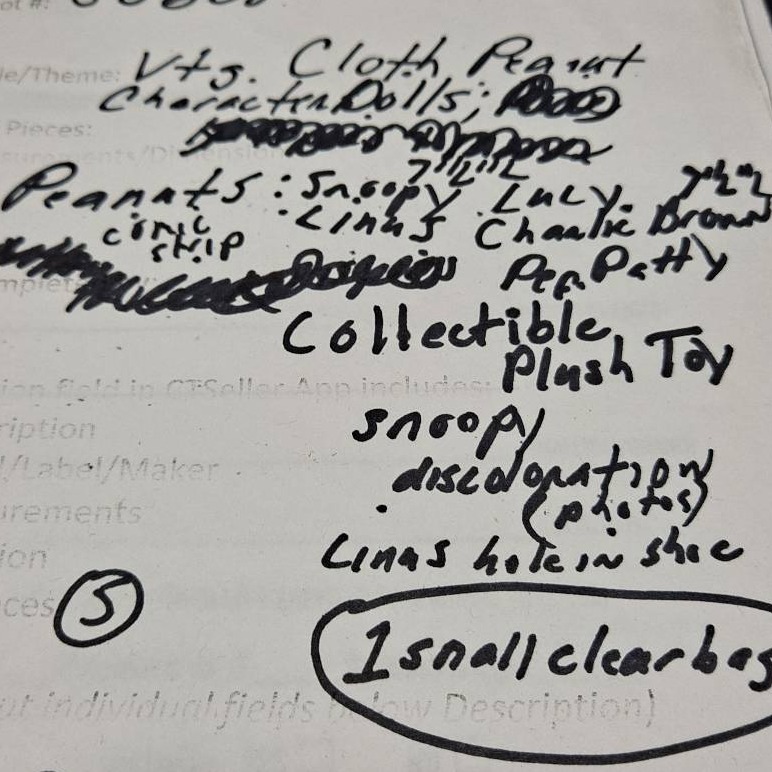 ot #:
le/Theme: Vtg. Cloth Peanut
Character Dolls;
Pieces:
surements/Dimension
7 1/2" 12
Peanuts: Snoopy Lucy 7 1/2" 12
comic strip
Linus Charlie Brown
Pep. Patty
mplet
Collectible
Plush Toy
ion field in CTSeller App includes:
ription
snoopy
l/Label/Maker
discoloration
urements
(photos)
ion
Linus hole in shoe
ces 5
1 small clear bag
ut individual fields below Description)